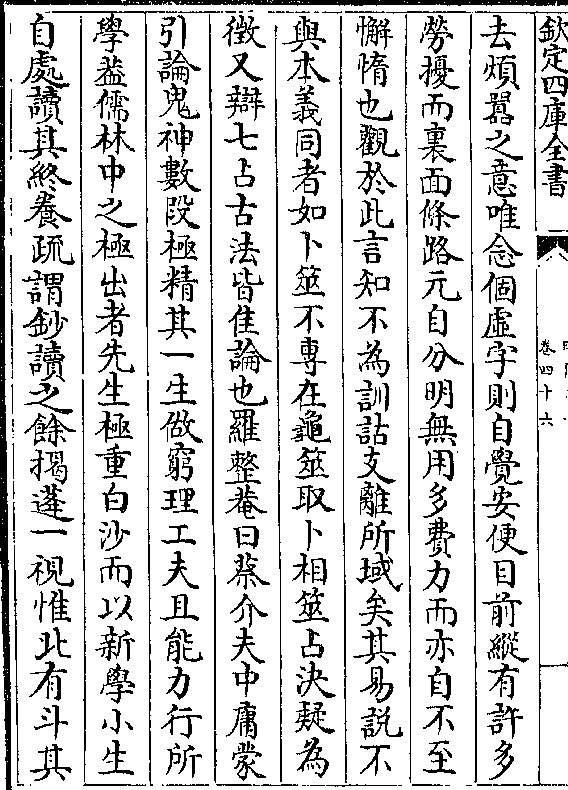 欽定四庫全書
卷四十六
去煩囂之意唯念個虛字則自覺安便目前縱有許多
勞擾而裏面條路元自分明無用多費力而亦自不至
懈惰也觀於此言知不為訓詁支離所域矣其易說不
與本義同者如卜筮不專在龜筮取卜相筮占決疑為
徵又辯七占古法皆佳論也羅整菴曰蔡介夫中庸蒙
引論鬼神數段極精其一生做窮理工夫且能力行所
學葢儒林中之極出者先生極重白沙而以新學小生
自處讀其終養疏謂鈔讀之餘揭蓬一視惟北有斗其